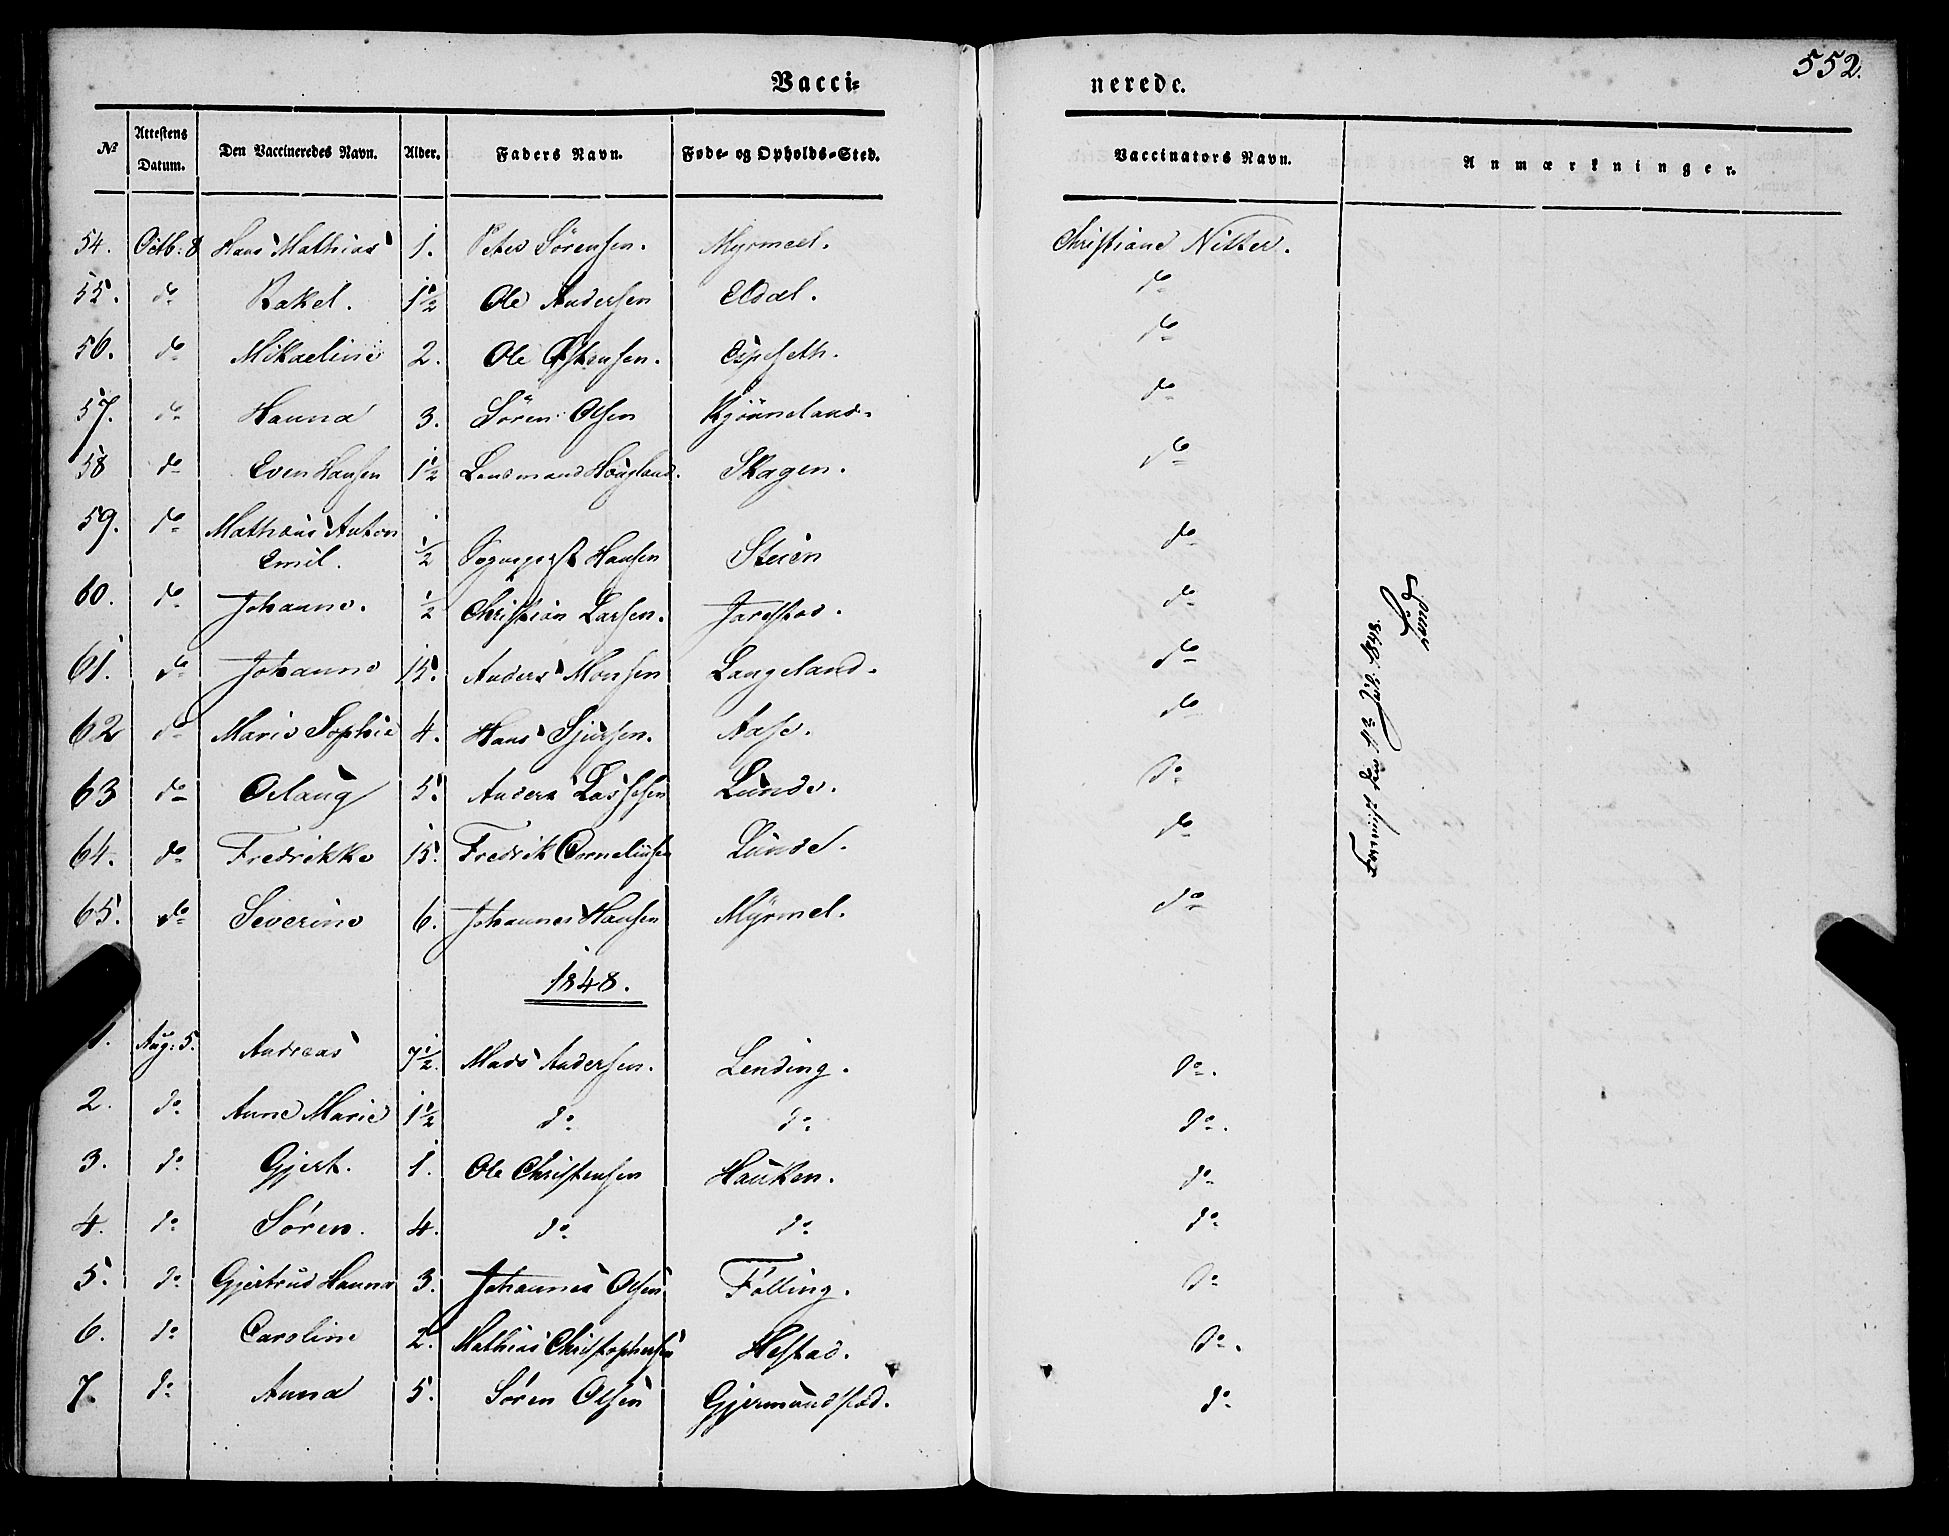 552.
Vaccinerede.
No | Attestens Datum. | Den Vaccineredes Navn. | Alder. | Faders Navn. | Føde- og Opholds-Sted. | Vaccinators Navn. | Anmærkninger.
54. | Octb: 8 | Hans Mathias | 1. | Peter Sörensen. | Myrmeel. | Christiane Nitter.
55. | do | Rakel. | 1½ | Ole Andersen | Eldal. | do
56. | do | Mikaeline | 2. | Ole Østensen. | Espeseth. | do
57. | do | Hanna | 3. | Sören Olsen | Kjönneland. | do
58 | do | Even Hansen | 1½ | Lensmand Hougland. | Skagen. | do
59. | do | Mathæus Anton Emil. | ½ | Sogneprst Hansen | Steien | do
60. | do | Johanne. | ½ | Christian Larsen. | Jarstad. | do
61. | do | Johanne | 15. | Anders Monsen | Langeland. | do
62 | do | Marie Sophie | 4. | Hans Sjursen. | Aase. | do
63 | do | Olaug | 5. | Anders Lassesen | Lunde. | do
64. | do | Fredrikke | 15. | Fredrik Corneliusen | Lunde. | do
65. | do | Severine | 6. | Johannes Hansen | Myrmel. | do
1848.
1. | Aug: 5. | Andreas | 7½. | Mads Andersen. | Lending. | do.
2. | do | Anne Marie | 1½ | do | do | do.
3. | do | Gjert. | 1. | Ole Christensen | Hauken. | do
4. | do | Søren. | 4. | do | do | do
5. | do | Gjertrud Hanna | 3. | Johannes Olsen | Følling. | do
6. | do | Caroline | 2. | Mathias Christophersen | Hestad. | do.
7. | do | Anna | 5. | Søren Olsen | Gjermundstad. | do
den 11te Juli 1848.
Lund